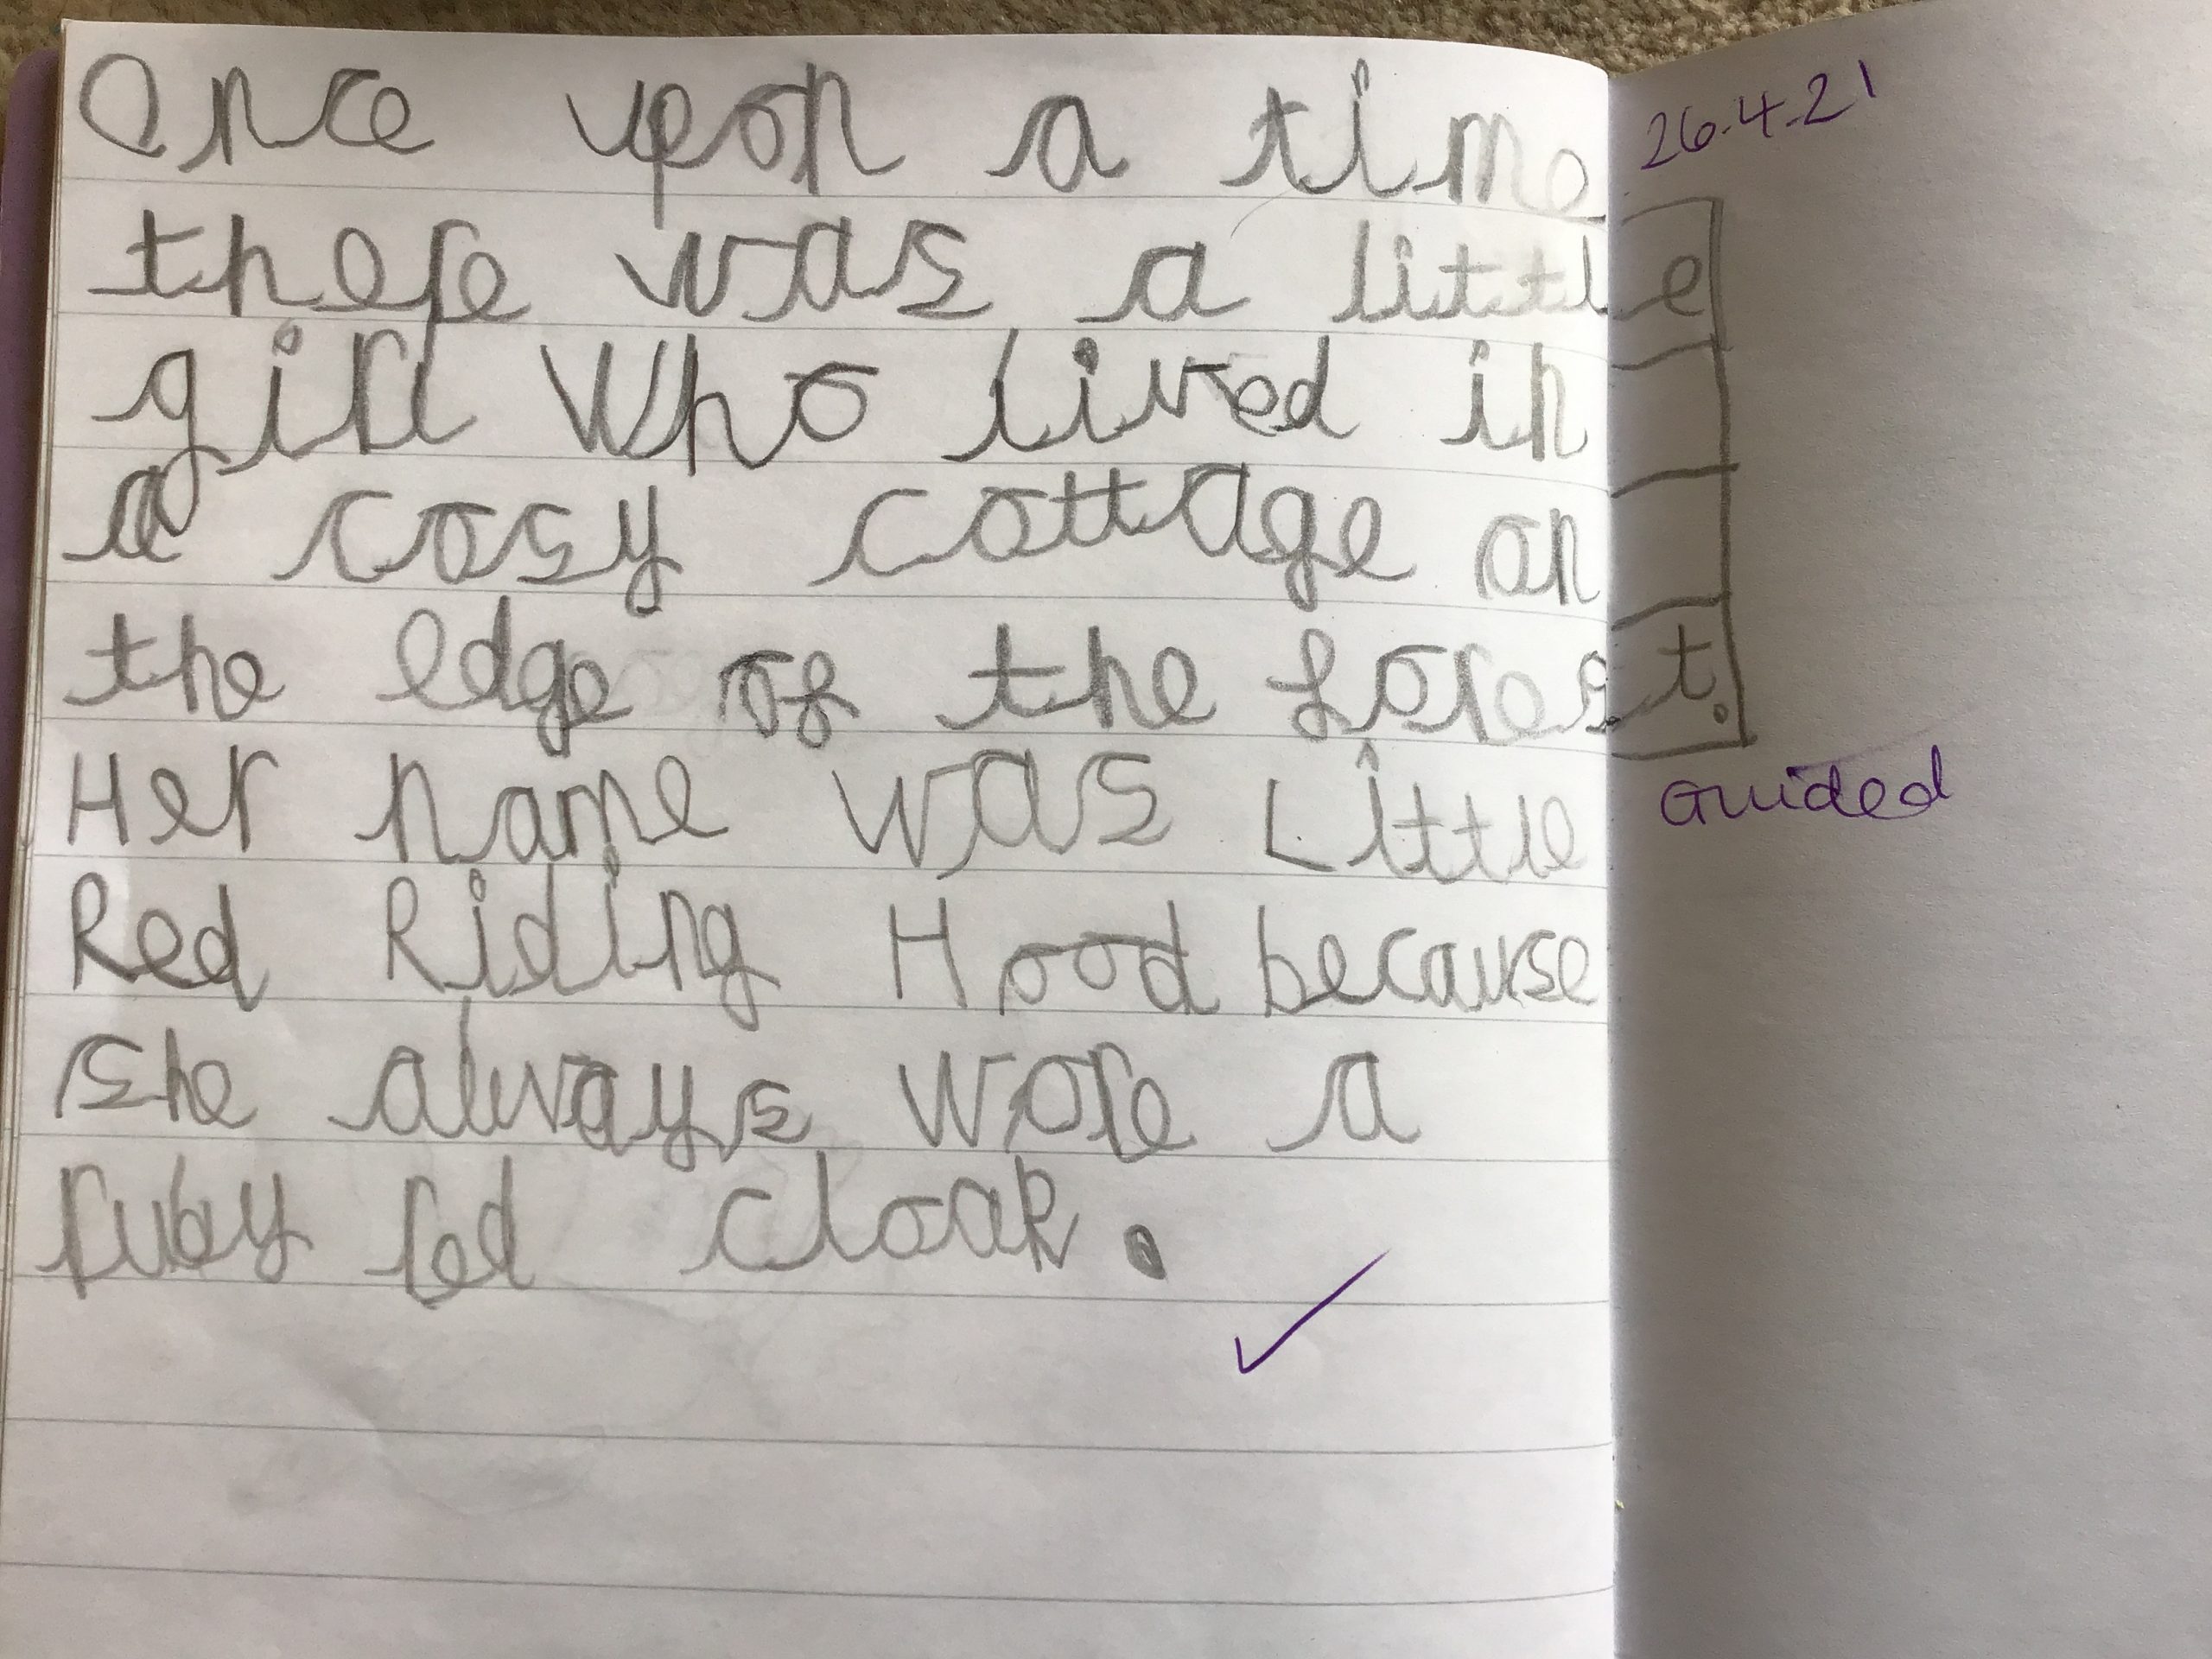 Once upon a time
26.4.21
there was a little
girl who lived in
a cosy cottage on
the edge of the forest.
Her name was Little
Guided
Red Riding Hood because
she always wore a
ruby red cloak.